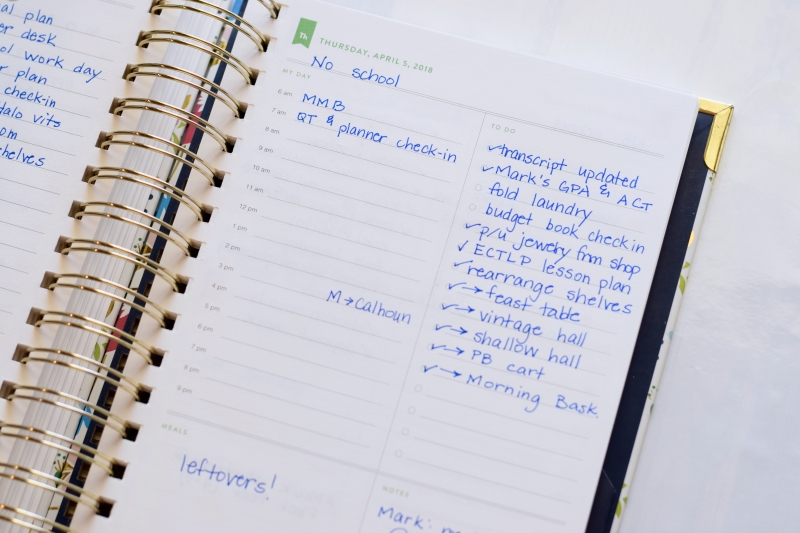 al plan
er desk
ol work day
r plan
check-in
dalo vits
om
shelves
Th
THURSDAY, APRIL 5, 2018
No school
MY DAY
6 am MMB
7 am QT & planner check-in
8 am
9 am
10 am
11 am
12 pm
1 pm
2 pm
3 pm
4 pm M→Calhoun
5 pm
6 pm
7 pm
8 pm
9 pm
TO DO
✓transcript updated
✓Mark's GPA & ACT
fold laundry
budget book check in
✓p/u jewelry frm shop
✓ECTLP lesson plan
✓rearrange shelves
✓→feast table
✓→vintage hall
✓→shallow hall
✓→PB cart
✓→Morning Bask.
MEALS
leftovers!
NOTES
Mark: